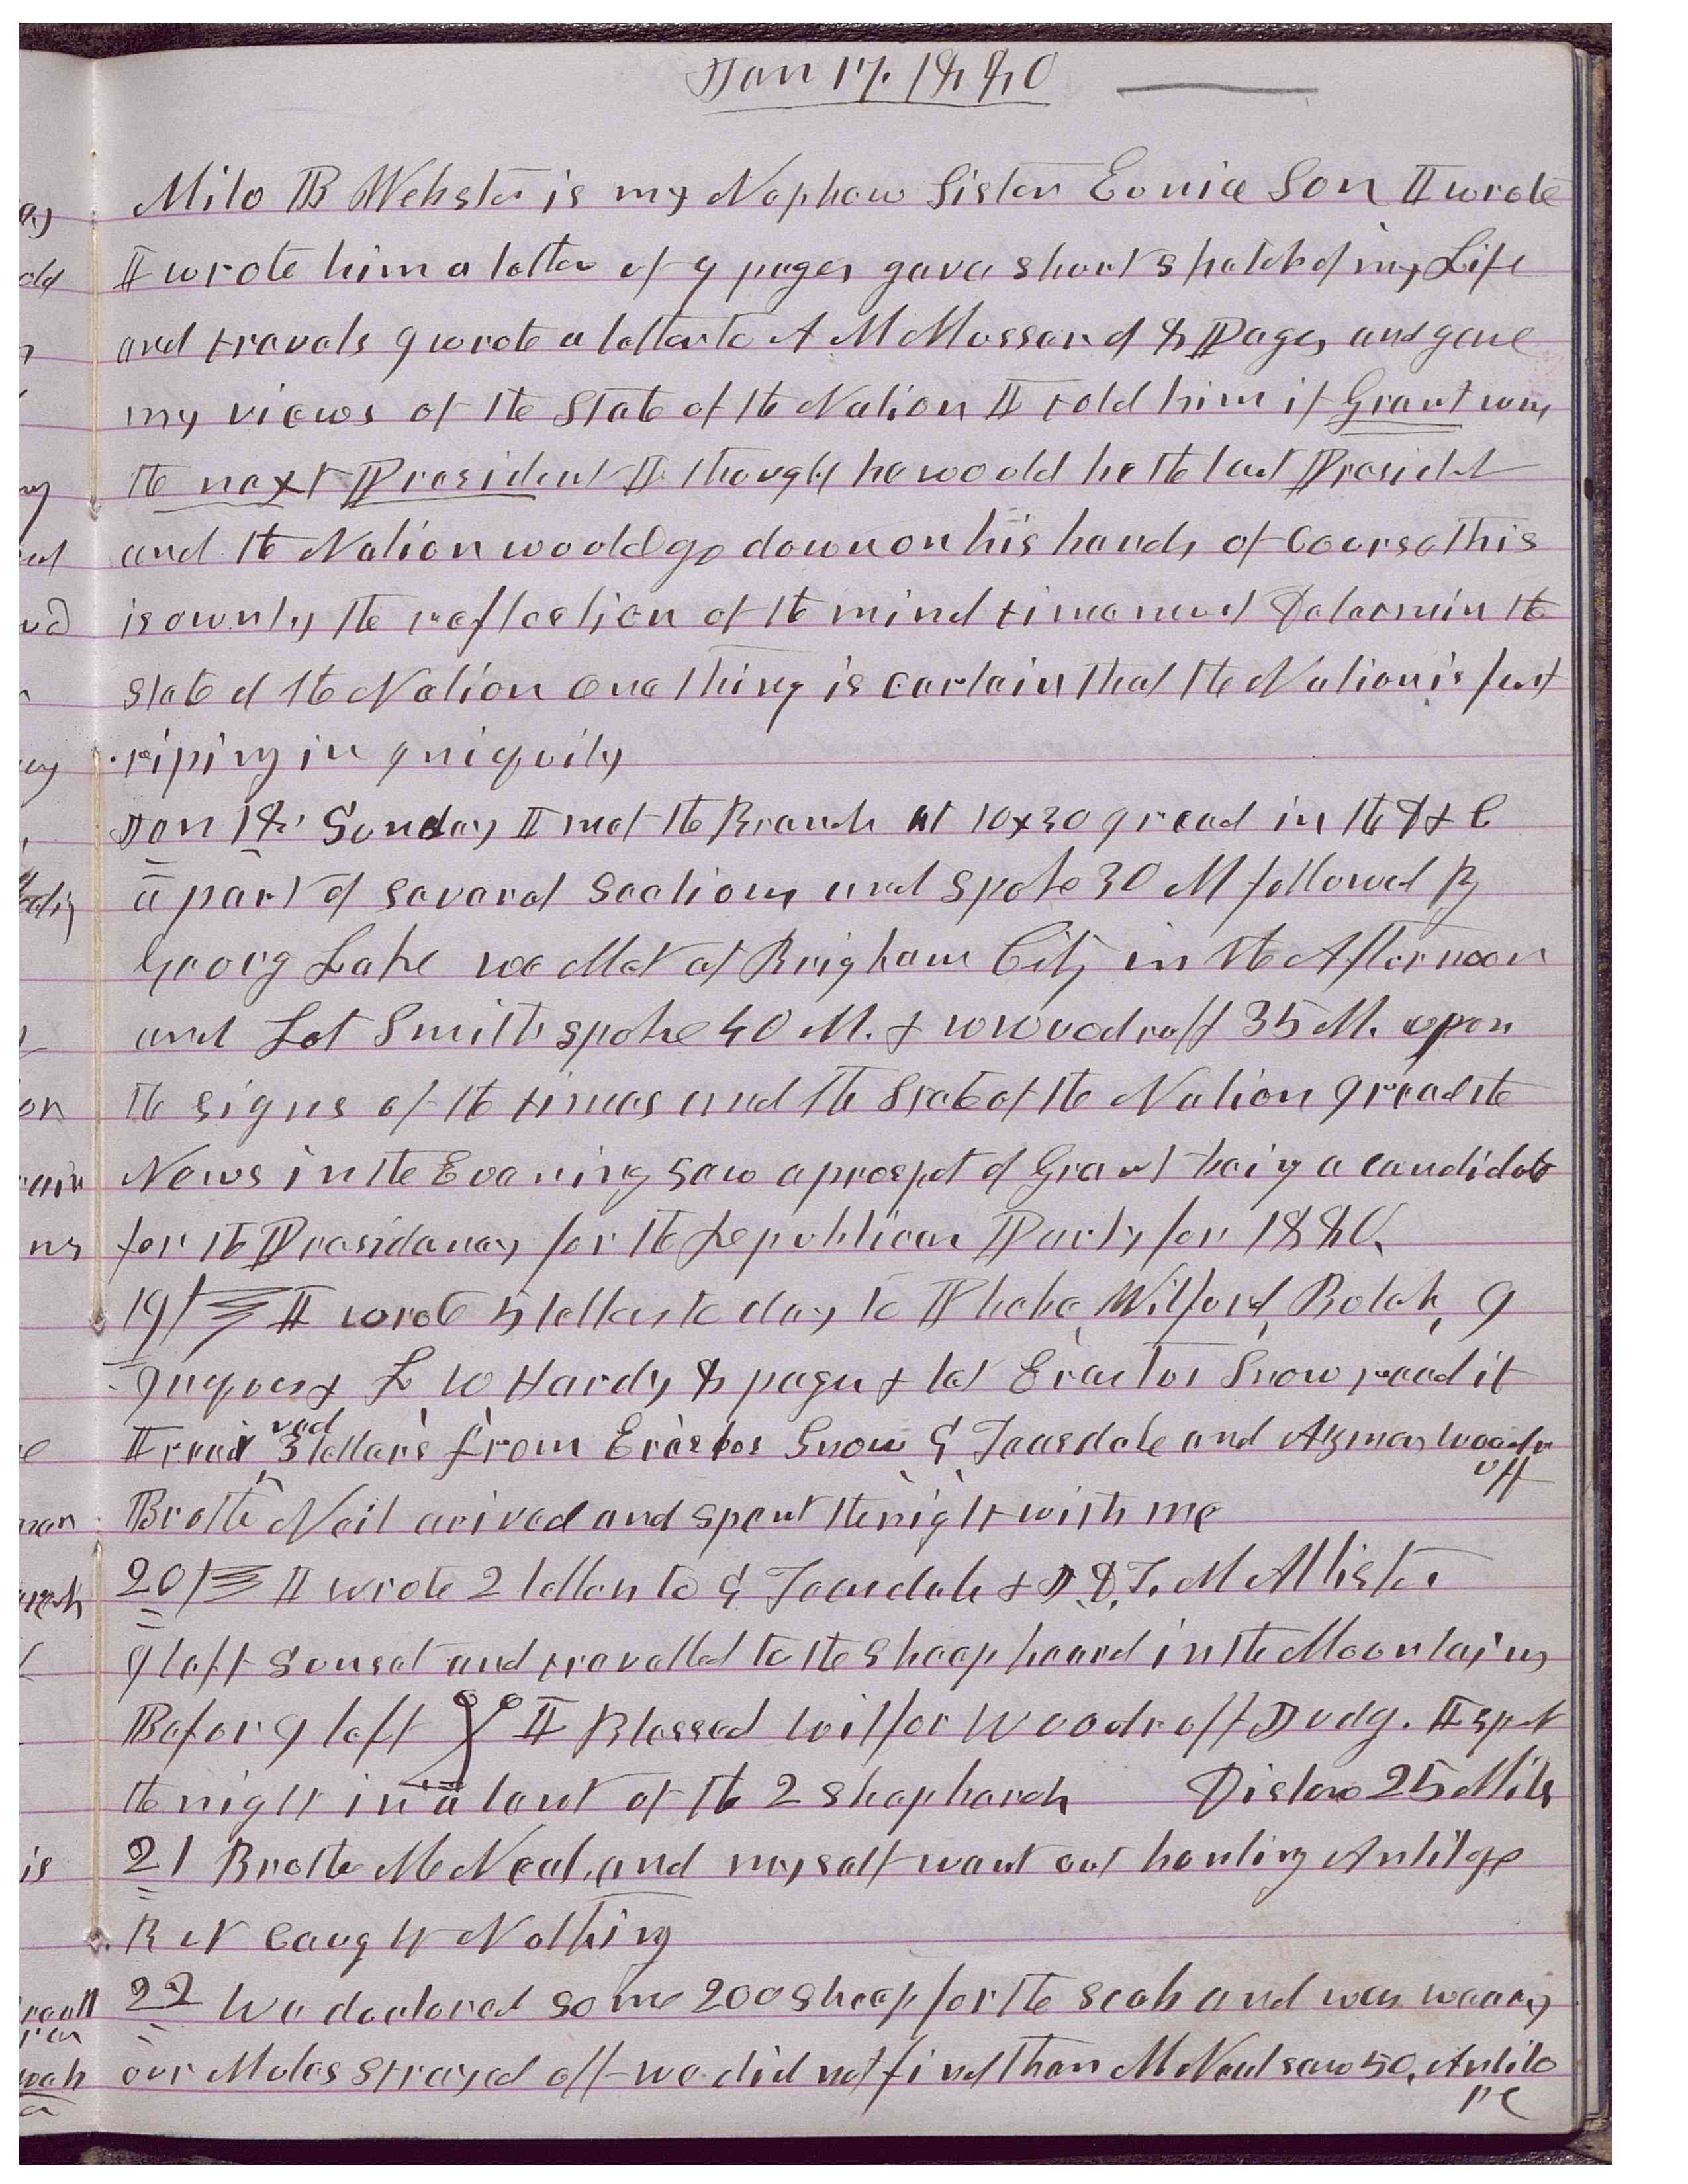 Jan 17. 1880
Milo B Webster is my Nephew Sister Eunice Son I wrote
I wrote him a letter of 9 pages gave short sketch of my Life
and travels I wrote a letter to A M Musser of 8 Pages and gave
my views of the State of the Nation I told him if Grant was
the next President I thought he would be the last Presidet
and the Nation would go down on his hands of Course this
is ownly the reflection of the mind time must Determin the
state of the Nation One thing is certain that the Nation is fast
riping in iniquity
Jan 18. Sunday I met the Branch at 10x30 I read in the D & C
a part of several sections and spoke 30 M followed By
Georg Lake we Met at Brigham City in the Afternoon
and Lot Smith spoke 40 M. & W Woodruff 35 M. upon
the signs of the times and the State of the Nation I read the
News in the Evening saw a prospet of Grant being a candidate
for the Presidency for the Republican Party for 1880.
19th I wrote 5 letters to day to Phebe, Wilford, Bulah, I
Jaques & L W Hardy 8 pages & let Erastus Snow read it
I receivd 3 letters from Erastus Snow G Teasdale and Azmon Woodr
uff
Brother Neil arived and spent the night with me
20th I wrote 2 letters to G Teasdale & J. D. T. McAllister
I left Sunset and travelled to the Sheep heard in the Mountains
Befor I left I Blessed Wilfor Woodruff Judg. I spet
the night in a tent of the 2 Shepherds Distan 25 Miles
21 Brother McNeal, and myself went out hunting Antilope
But Caught Nothing
22 We doctored some 200 Sheep for the scab and was weary
our Mules strayed off we did not find them McNeal saw 50, Antilo
pe